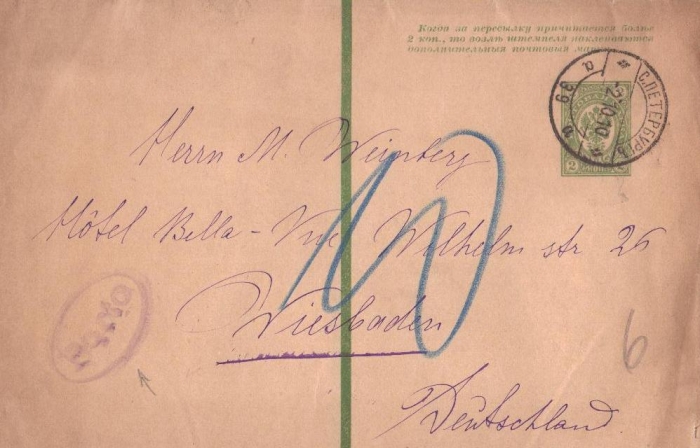 Когда за пересылку причитается болѣе
2 коп., то возлѣ штемпеля наклеиваются
дополнительныя почтовыя мар
С.ПЕТЕРБУРГЪ
2
Herrn M. Weinberg
Hôtel Bella-Vue Wilhelm str 26
Wiesbaden
Deutschland
10
6